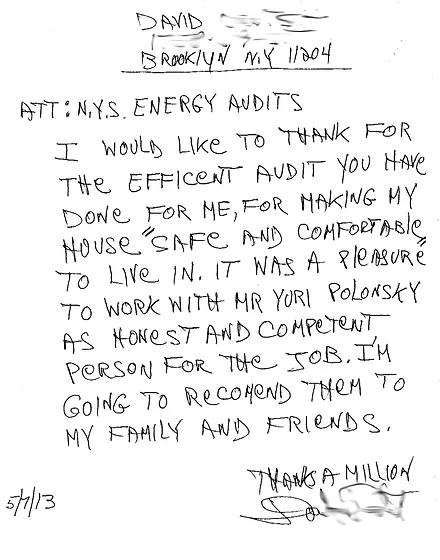 DAVID
BROOKLYN N.Y 11204
ATT: N.Y.S. ENERGY AUDITS
I WOULD LIKE TO THANK FOR
THE EFFICENT AUDIT YOU HAVE
DONE FOR ME, FOR MAKING MY
HOUSE "SAFE AND COMFORTABLE"
TO LIVE IN. IT WAS A PLEASURE
TO WORK WITH MR YURI POLONSKY
AS HONEST AND COMPETENT
PERSON FOR THE JOB. I'M
GOING TO RECOMEND THEM TO
MY FAMILY AND FRIENDS.
THANKS A MILLION
5/7/13